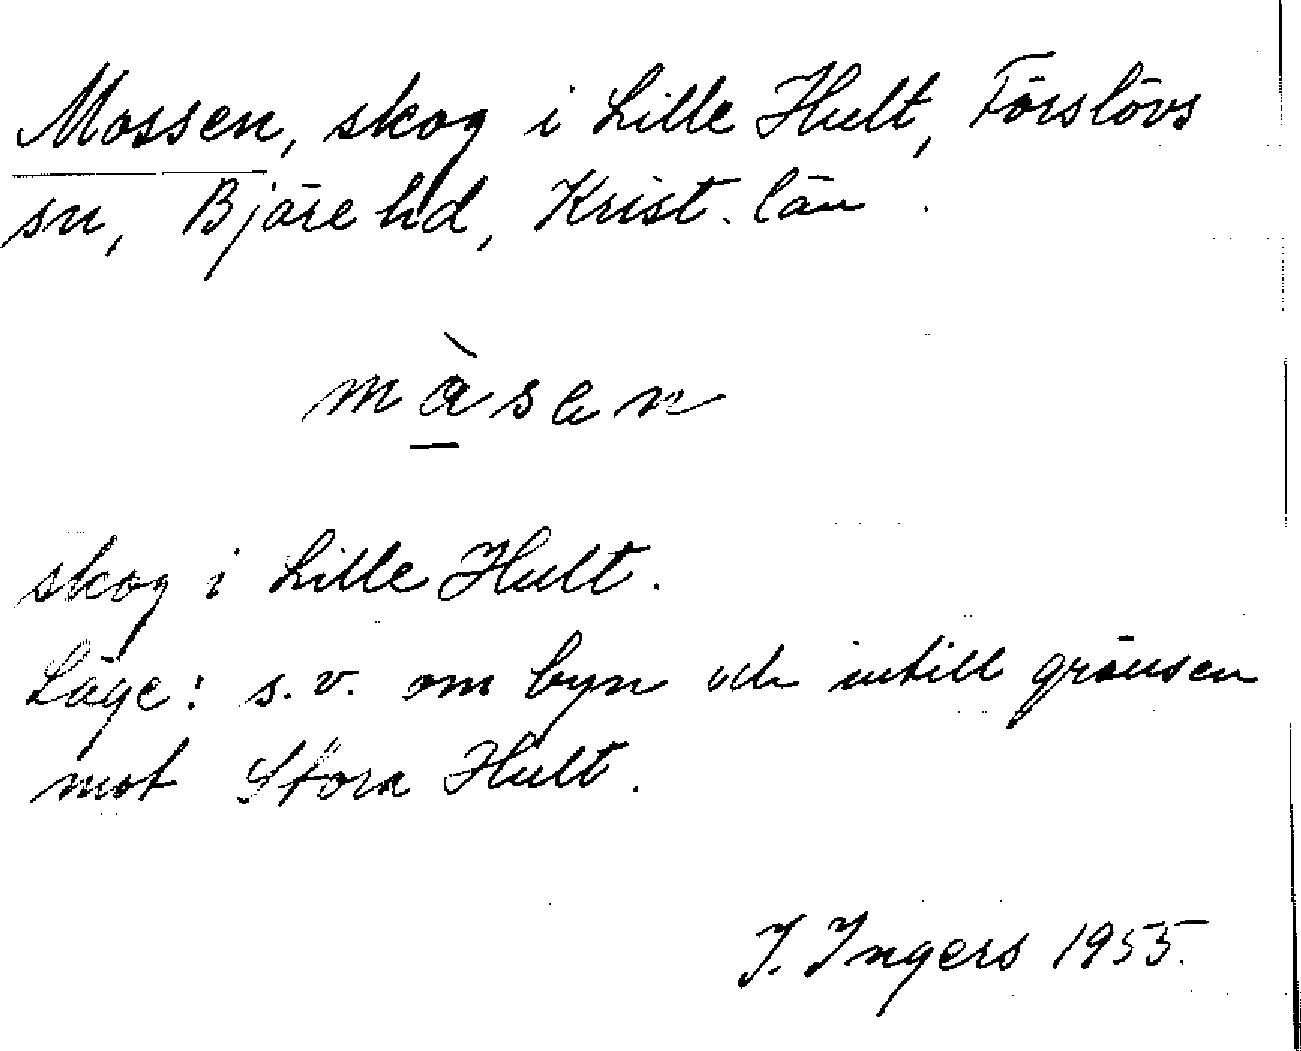 Mossen, skog i Lille Hult, Förslövs
sn, Bjäre hd, Krist. län.
màsen
skog i Lille Hult.
Läge: s.v. om byn och intill gränsen
mot Stora Hult.
I. Ingers 1955.